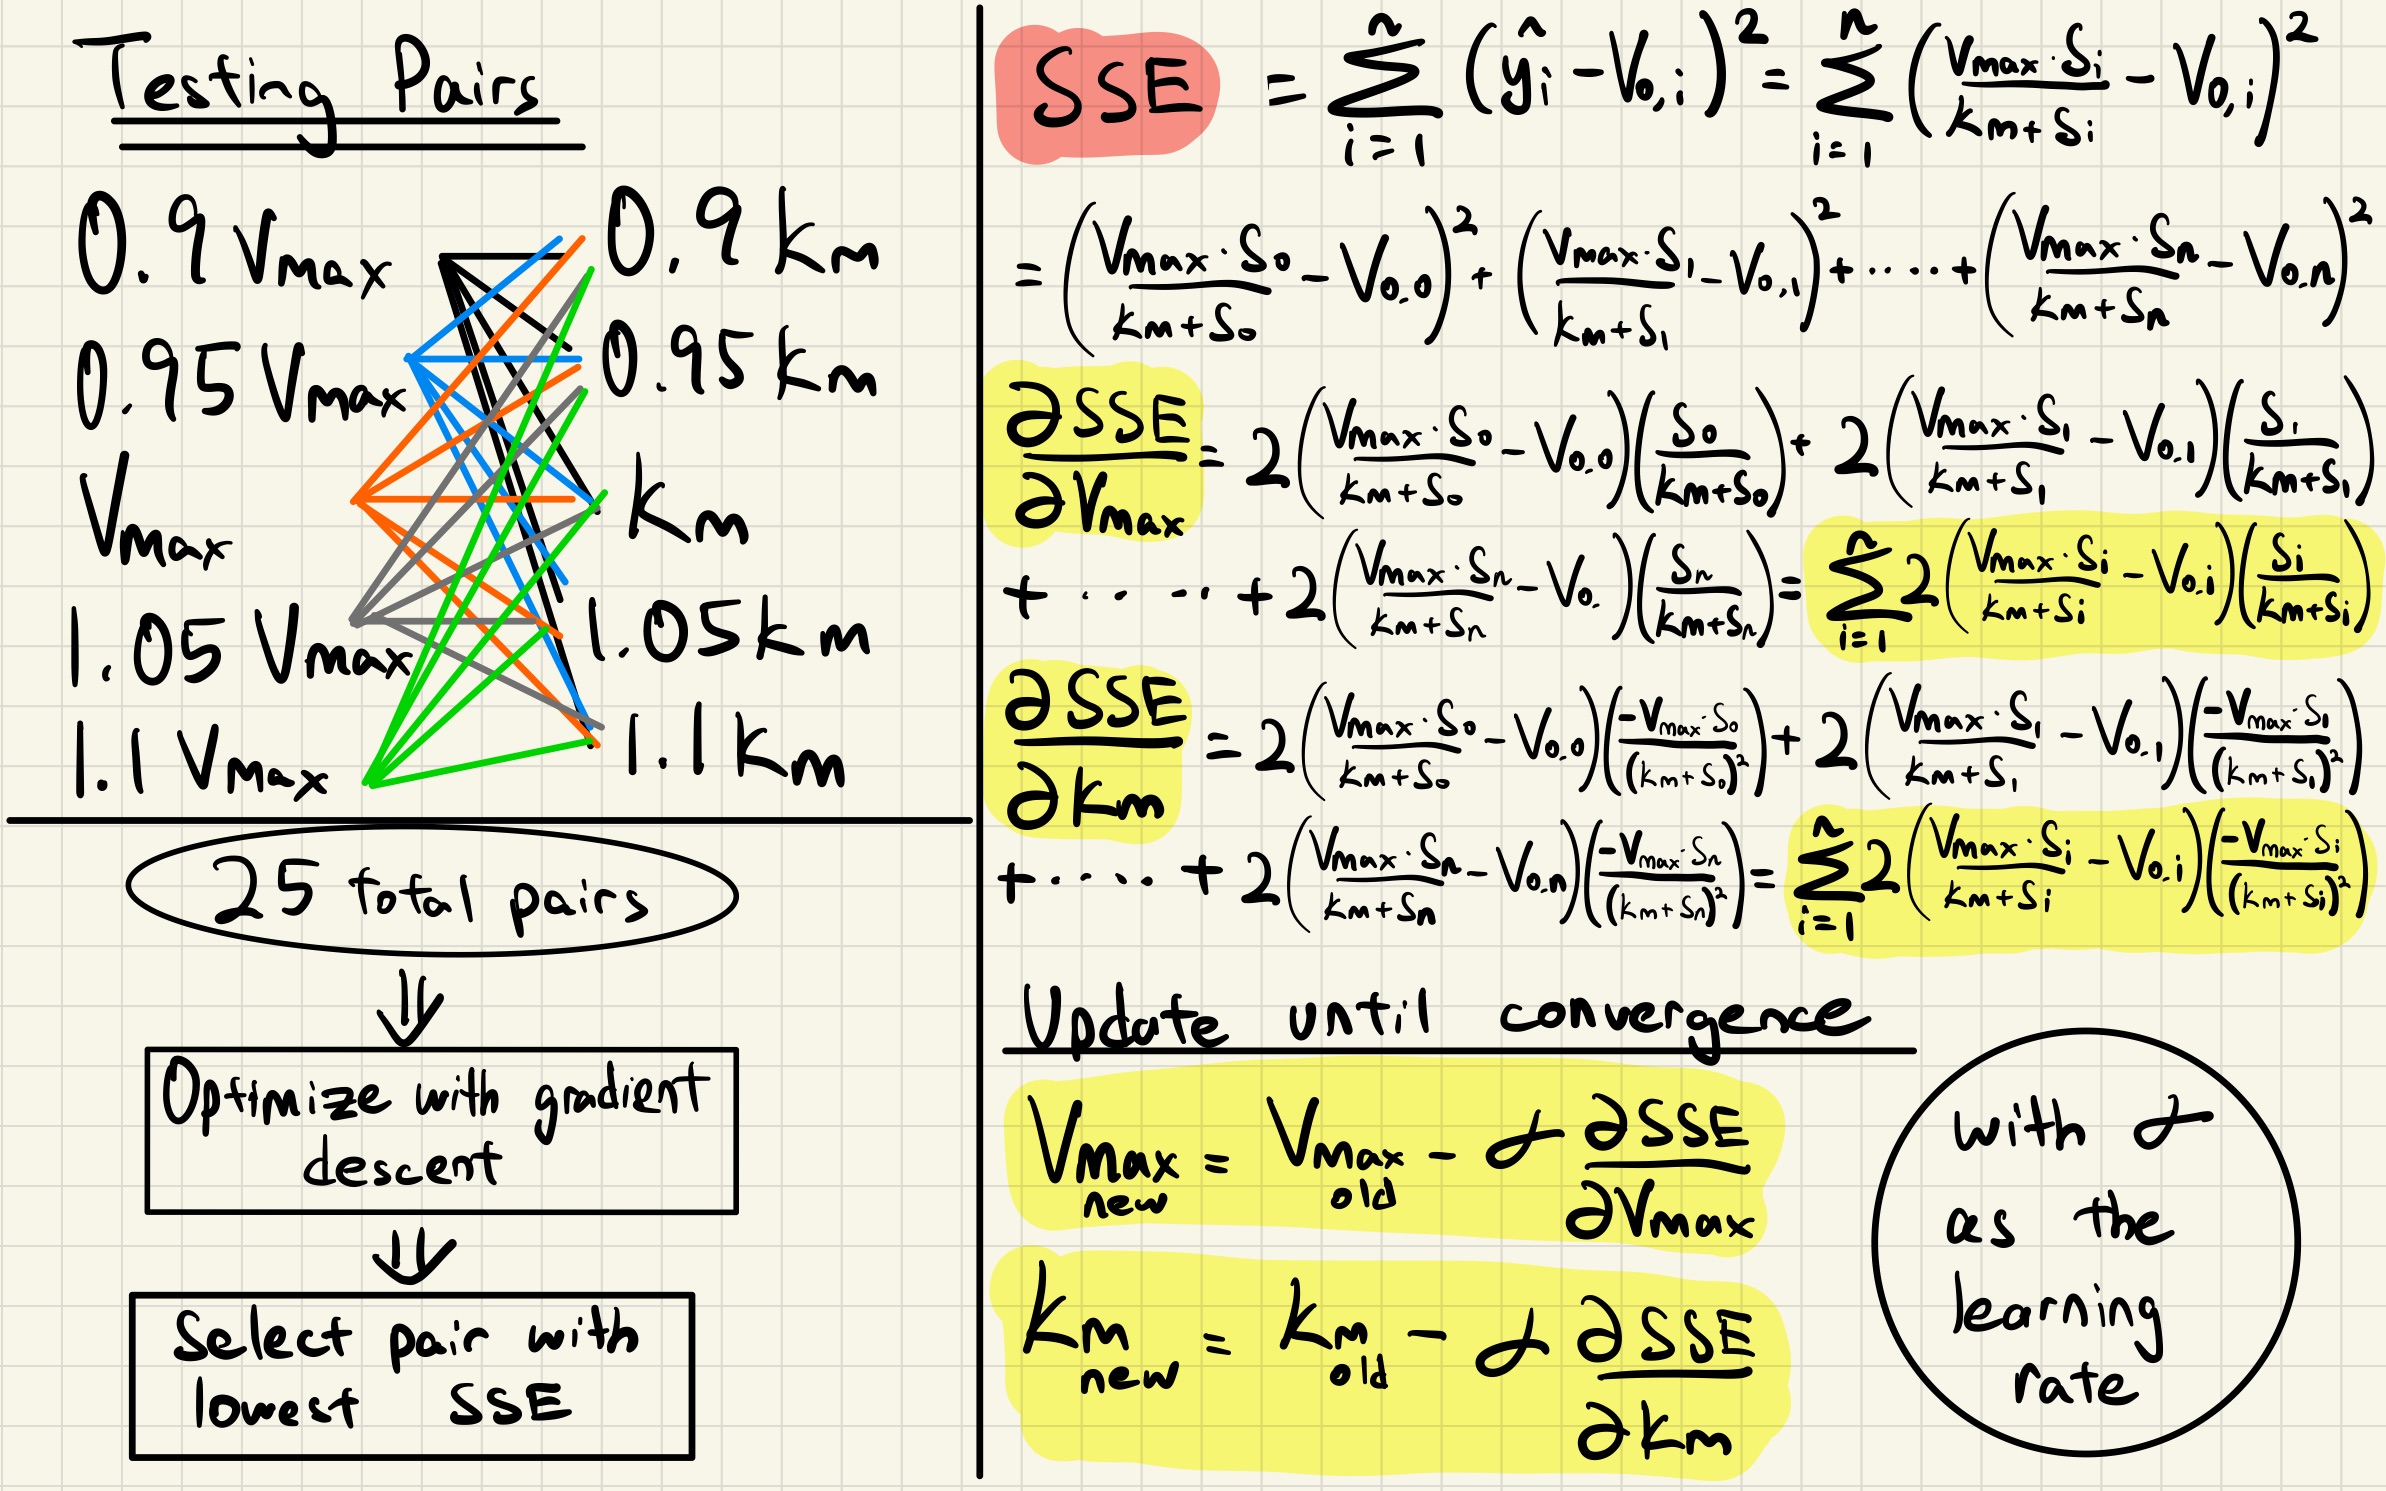 Testing Pairs
0.9 Vmax 0.9 km
0.95 Vmax 0.95 km
Vmax km
1.05 Vmax 1.05 km
1.1 Vmax 1.1 km
25 total pairs
⇓
Optimize with gradient
descent
⇓
Select pair with
lowest SSE
SSE = ∑_{i=1}^{n} (ŷi - V0,i)² = ∑_{i=1}^{n} (Vmax·Si/(km+Si) - V0,i)²
= (Vmax·S0/(km+S0) - V0.0)² + (Vmax·S1/(km+S1) - V0,1)² + ····· + (Vmax·Sn/(km+Sn) - V0.n)²
∂SSE/∂Vmax = 2(Vmax·S0/(km+S0) - V0.0)(S0/(km+S0)) + 2(Vmax·S1/(km+S1) - V0.1)(S1/(km+S1))
+ ···· + 2(Vmax·Sn/(km+Sn) - V0.)(Sn/(km+Sn)) = ∑_{i=1}^{n} 2(Vmax·Si/(km+Si) - V0.i)(Si/(km+Si))
∂SSE/∂km = 2(Vmax·S0/(km+S0) - V0.0)(-Vmax·S0/(km+S0)²) + 2(Vmax·S1/(km+S1) - V0.1)(-Vmax·S1/(km+S1)²)
+ ···· + 2(Vmax·Sn/(km+Sn) - V0.n)(-Vmax·Sn/(km+Sn)²) = ∑_{i=1}^{n} 2(Vmax·Si/(km+Si) - V0.i)(-Vmax·Si/(km+Si)²)
Update until convergence
Vmax new = Vmax old - α ∂SSE/∂Vmax
km new = km old - α ∂SSE/∂km
with α
as the
learning
rate